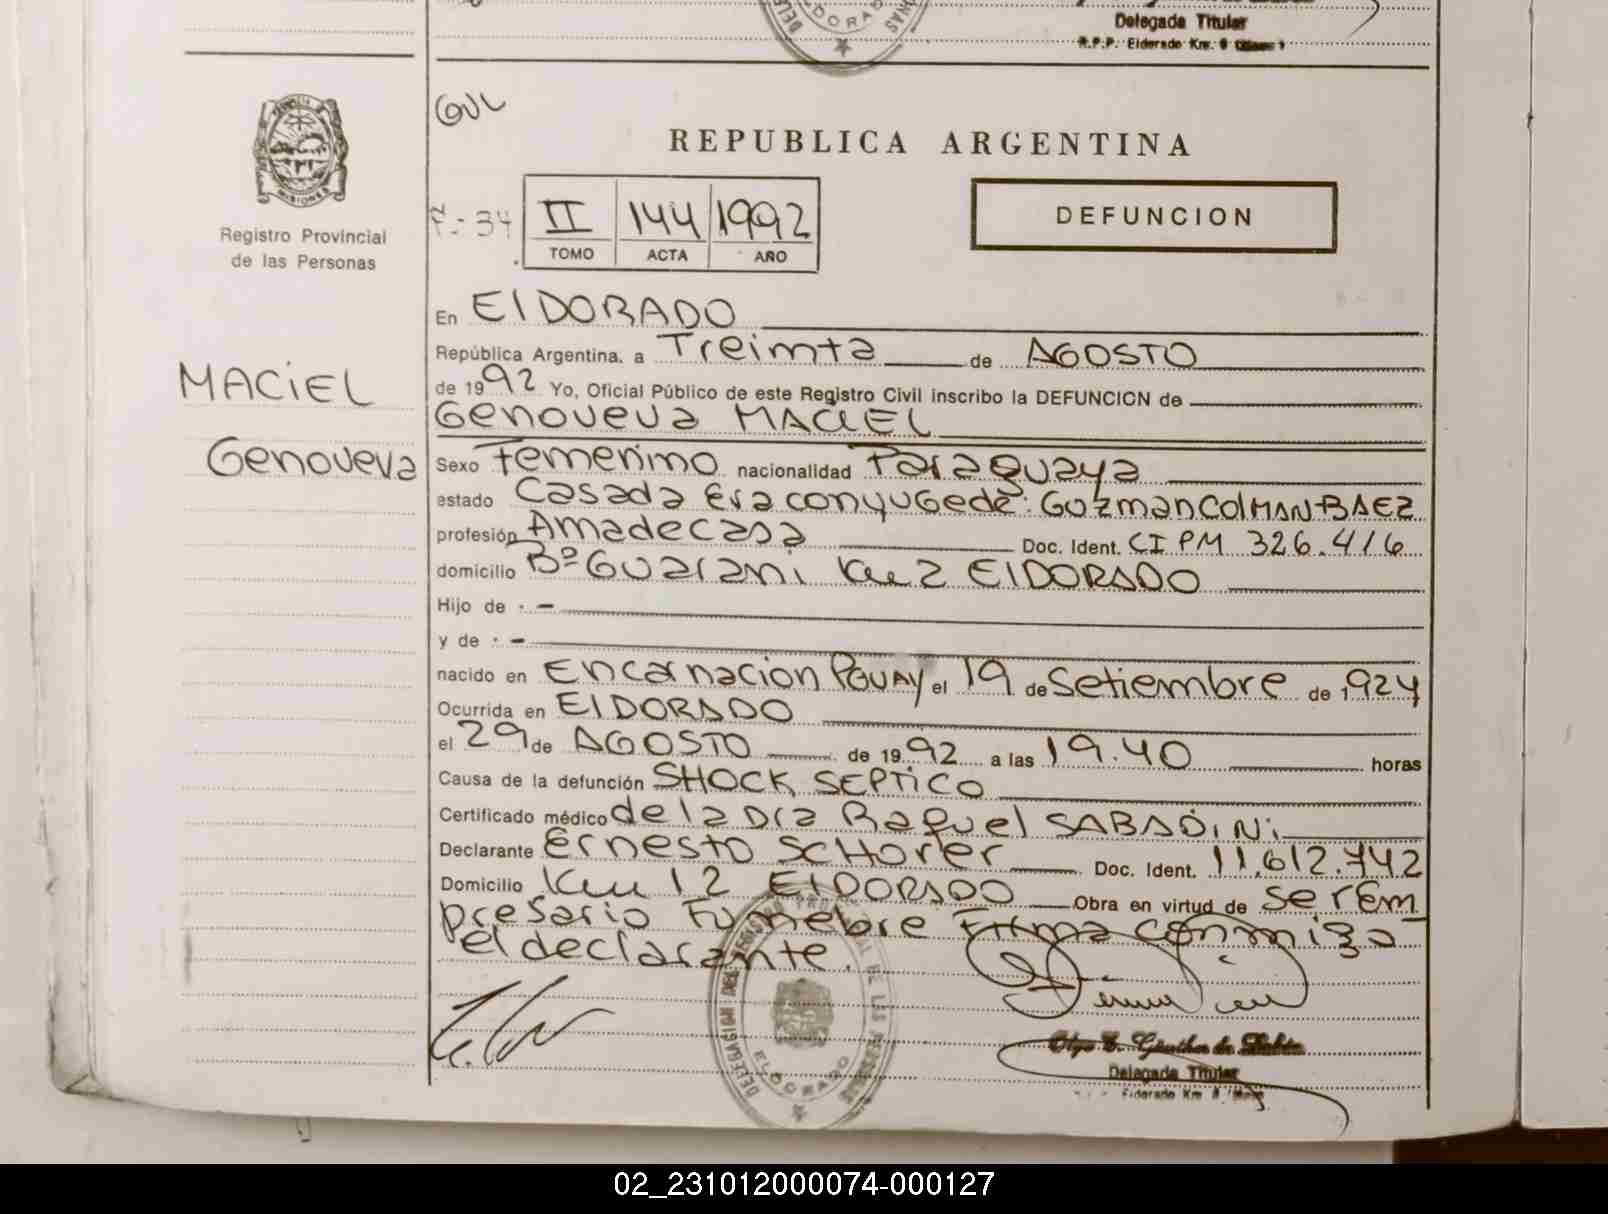 Delegada Titular
R.P.P. Eldorado Km. 9
ELDORADO
REPUBLICA ARGENTINA
MISIONES
Registro Provincial
de las Personas
F: 34
II 144 1992
TOMO ACTA AÑO
DEFUNCION
MACIEL
Genoveva
En ElDORADO
República Argentina, a Treinta de AGOSTO
de 1992 Yo, Oficial Público de este Registro Civil inscribo la DEFUNCION de
Genoveva MACIEL
Sexo Femenino nacionalidad Paraguaya
estado Casada Era conyuge de: Guzman ColMAN-BAEZ
profesión Ama de casa Doc. Ident. CI PM 326.416
domicilio Bº Guarani Km 2 ElDORADO
Hijo de · —
y de · —
nacido en Encarnacion PGUAY el 19 de Setiembre de 1924
Ocurrida en ElDORADO
el 29 de AGOSTO de 1992 a las 19.40 horas
Causa de la defunción SHOCK SEPTICO
Certificado médico de la Dra Raquel SABADINi
Declarante Ernesto SCHorer Doc. Ident. 11.612.742
Domicilio Km 12 ElDORADO Obra en virtud de ser Em
presario Funebre Firma conmigo
el declarante.
DELEGACION DEL REGISTRO PROVINCIAL DE LAS PERSONAS
ELDORADO
Delegada Titular
Eldorado Km. 9
02_231012000074-000127